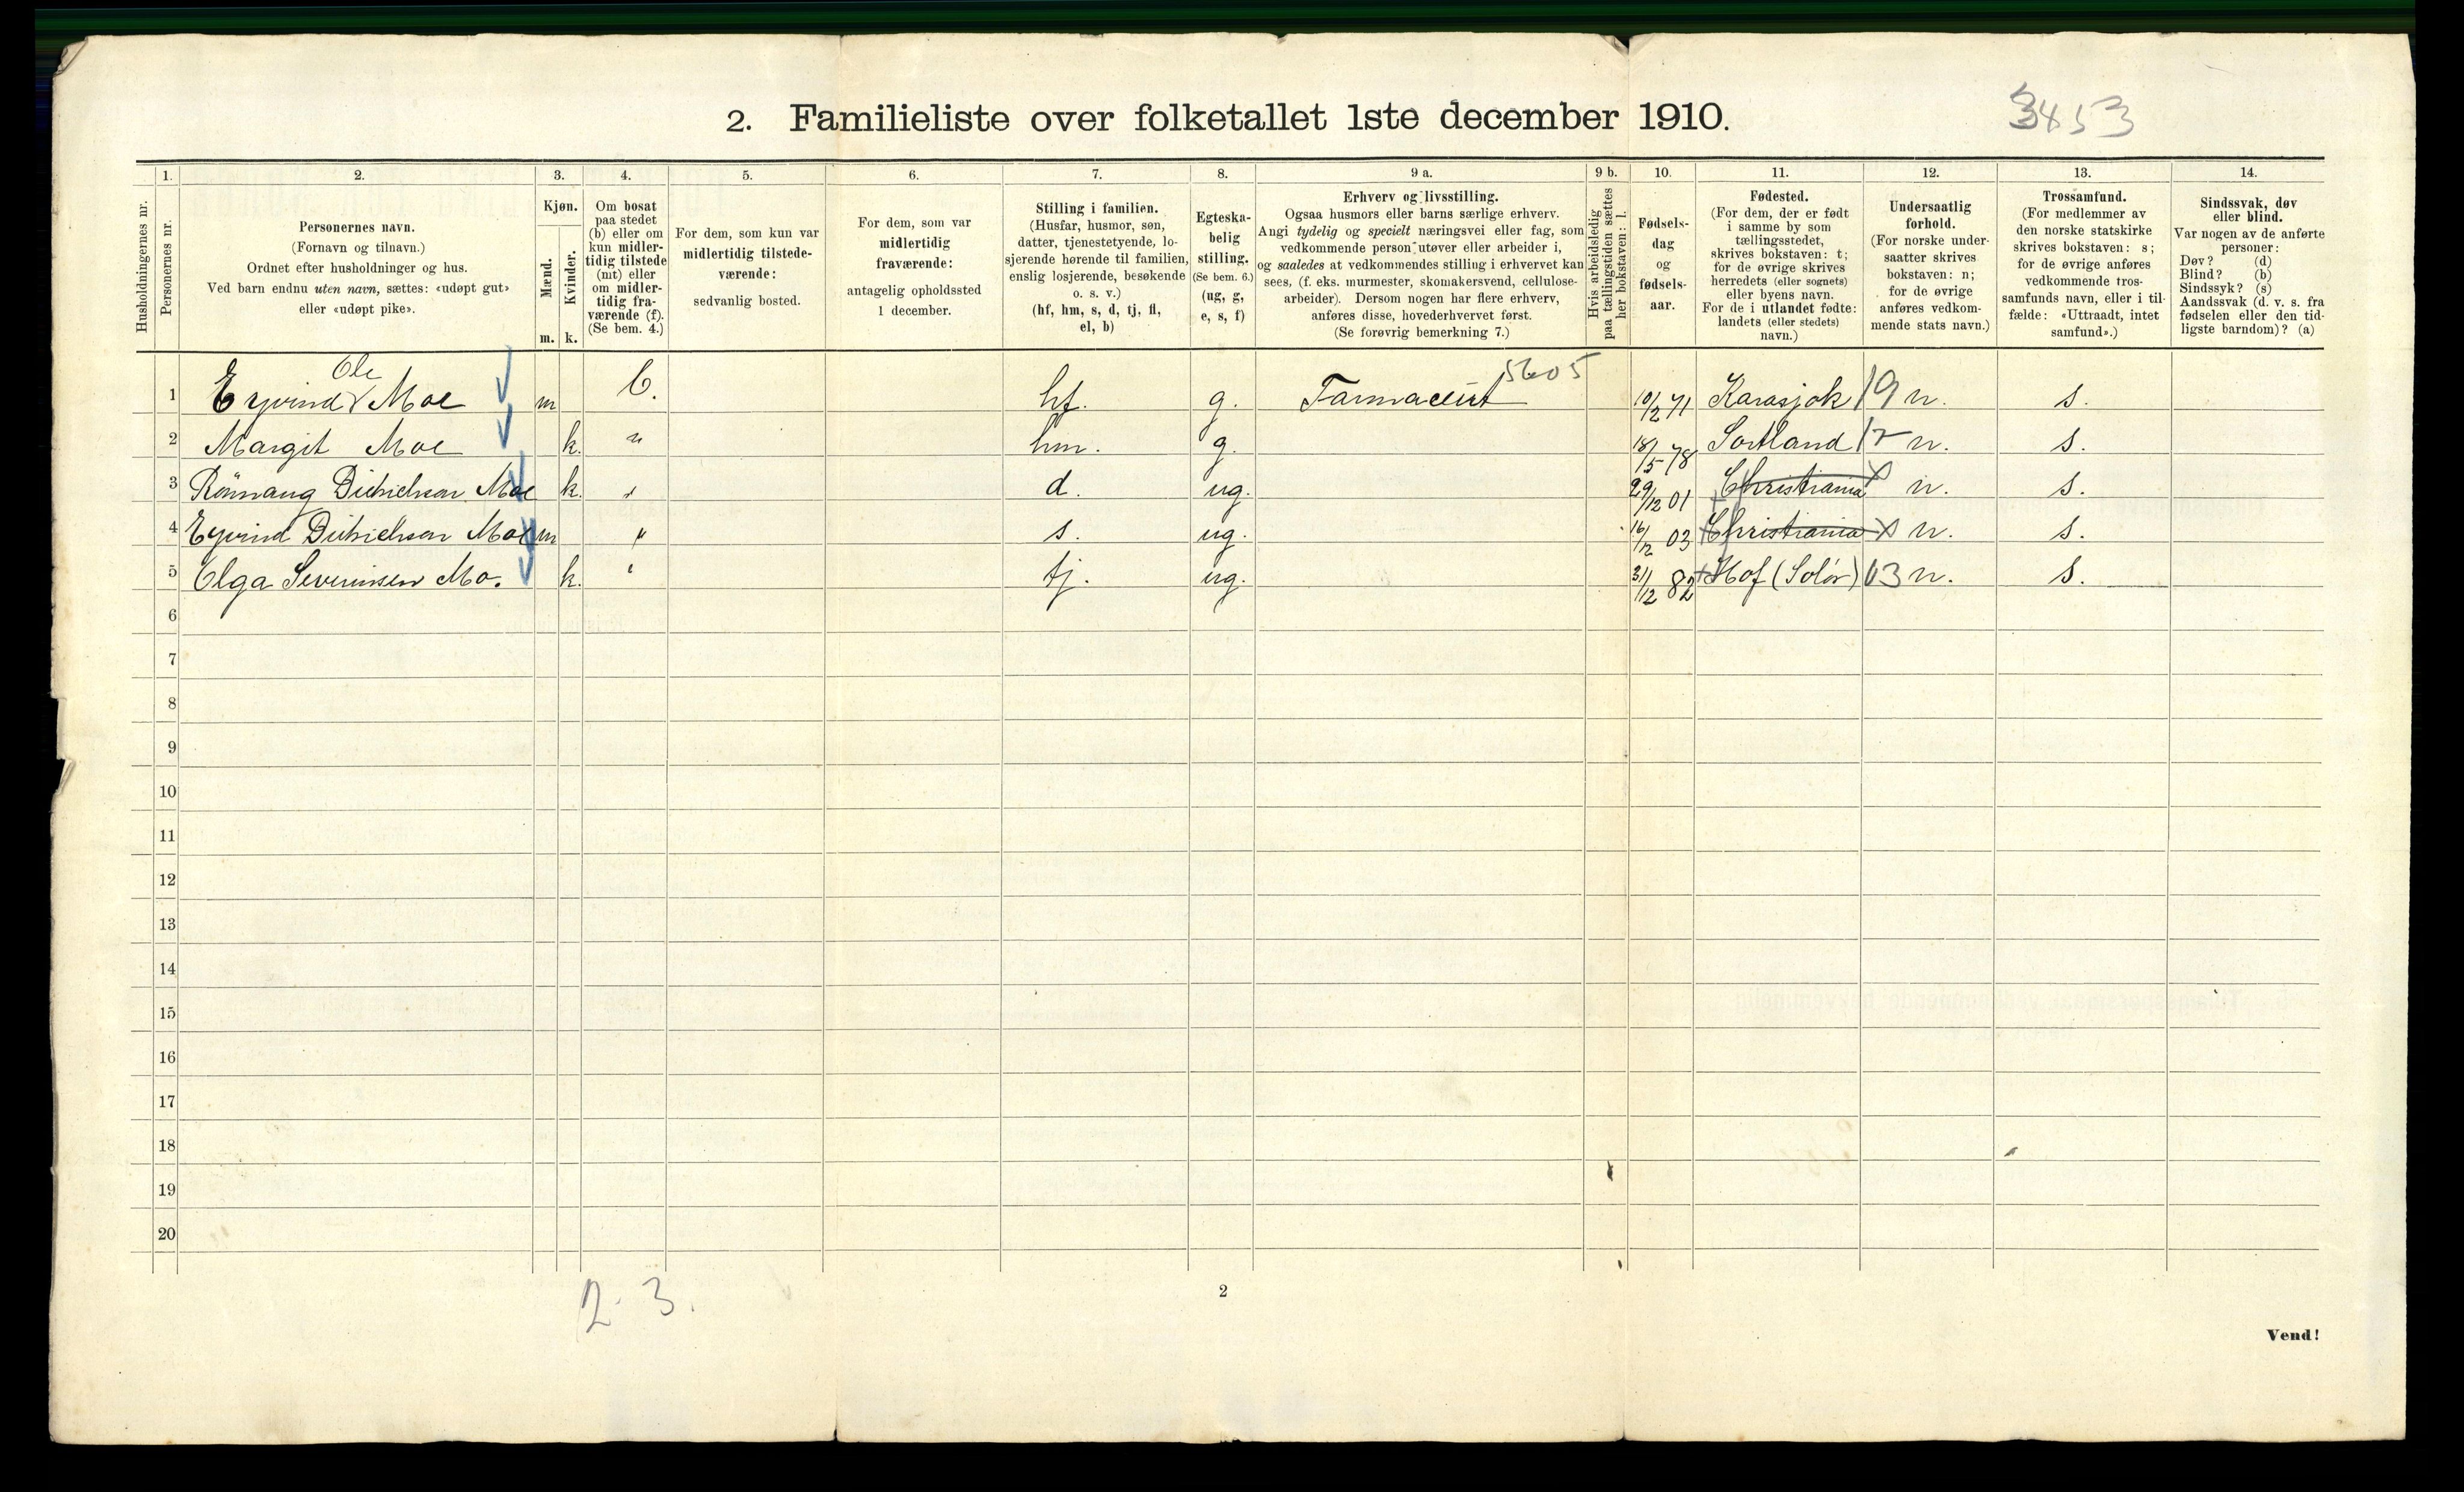 2. Familieliste over folketallet 1ste december 1910.
3453
Husholdningernes nr.
1.
Personernes nr.
2.
Personernes navn.
(Fornavn og tilnavn.)
Ordnet efter husholdninger og hus.
Ved barn endnu uten navn, sættes: «udøpt gut»
eller «udøpt pike».
3.
Kjøn.
Mænd.
Kvinder.
m. k.
4.
Om bosat
paa stedet
(b) eller om
kun midler-
tidig tilstede
(mt) eller
om midler-
tidig fra-
værende (f).
(Se bem. 4.)
5.
For dem, som kun var
midlertidig tilstede-
værende:
sedvanlig bosted.
6.
For dem, som var
midlertidig
fraværende:
antagelig opholdssted
1 december.
7.
Stilling i familien.
(Husfar, husmor, søn,
datter, tjenestetyende, lo-
sjerende hørende til familien,
enslig losjerende, besøkende
o. s. v.)
(hf, hm, s, d, tj, fl,
el, b)
8.
Egteska-
belig
stilling.
(Se bem. 6.)
(ug, g,
e, s, f)
9 a.
Erhverv og livsstilling.
Ogsaa husmors eller barns særlige erhverv.
Angi tydelig og specielt næringsvei eller fag, som
vedkommende person utøver eller arbeider i,
og saaledes at vedkommendes stilling i erhvervet kan
sees, (f. eks. murmester, skomakersvend, cellulose-
arbeider). Dersom nogen har flere erhverv,
anføres disse, hovederhvervet først.
(Se forøvrig bemerkning 7.)
9 b.
Hvis arbeidsledig
paa tællingstiden sættes
her bokstaven: l.
10.
Fødsels-
dag
og
fødsels-
aar.
11.
Fødested.
(For dem, der er født
i samme by som
tællingsstedet,
skrives bokstaven: t;
for de øvrige skrives
herredets (eller sognets)
eller byens navn.
For de i utlandet fødte:
landets (eller stedets)
navn.)
12.
Undersaatlig
forhold.
(For norske under-
saatter skrives
bokstaven: n;
for de øvrige
anføres vedkom-
mende stats navn.)
13.
Trossamfund.
(For medlemmer av
den norske statskirke
skrives bokstaven: s;
for de øvrige anføres
vedkommende tros-
samfunds navn, eller i til-
fælde: «Uttraadt, intet
samfund».)
14.
Sindssvak, døv
eller blind.
Var nogen av de anførte
personer:
Døv? (d)
Blind? (b)
Sindssyk? (s)
Aandssvak (d. v. s. fra
fødselen eller den tid-
ligste barndom)? (a)
Ole
1 Eyvind Moe m b. hf. g. Farmaceut 5605 10/2 71 Karasjok 19 n. s.
2 Margit Moe k. " hm. g. 18/5 78 Sortland 17 n. s.
3 Rønnaug Dietrichson Moe k. " d. ug. 29/12 01 Christiania n. s.
4 Eyvind Dietrichson Moe m " s. ug. 16/12 03 Christiania n. s.
5 Olga Severinsen Mo. k. " tj. ug. 31/12 82 Hof (Solør) 03 n. s.
6
7
8
9
10
11
12
13
14
15
16
17
18
19
20
2. 3.
2
Vend!